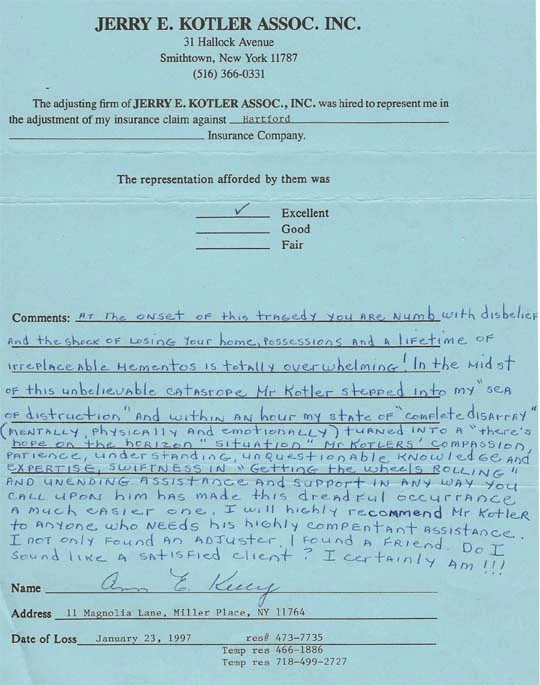 JERRY E. KOTLER ASSOC. INC.
31 Hallock Avenue
Smithtown, New York 11787
(516) 366-0331
The adjusting firm of JERRY E. KOTLER ASSOC., INC. was hired to represent me in
the adjustment of my insurance claim against Hartford
Insurance Company.
The representation afforded by them was
✓ Excellent
Good
Fair
Comments: AT The ONSET OF This TRAGEDY YOU ARE NUMB with disbelief
AND the shock OF LOSING YOUR home, POSSESSIONS AND A LIFETIME OF
IRREPLACEABLE MEMENTOS is TOTALLY OVERWHELMING! IN the MIDST
OF this UNBELIEVABLE CATASTROPE MR KOTLER STEPPED INTO MY "SEA
OF DISTRUCTION" AND WITHIN AN hour my STATE OF "COMPLETE DISARRAY"
(MENTALLY, PHYSICALLY AND EMOTIONALLY) TURNED INTO A "there's
hope on the horizon" SITUATION" MR KOTLERS' COMPASSION,
PATIENCE, UNDERSTANDING, UNQUESTIONABLE KNOWLEDGE AND
EXPERTISE, SWIFTNESS IN "GETTING the WHEELS ROLLING"
AND UNENDING ASSISTANCE AND SUPPORT IN ANY WAY YOU
CALL UPON him HAS MADE THIS DREADFUL OCCURRANCE
A MUCH EASIER ONE. I WILL highly RECOMMEND MR KOTLER
TO ANYONE who NEEDS his highly COMPENTANT ASSISTANCE.
I NOT ONLY FOUND AN ADJUSTER, I FOUND A FRIEND. DO I
SOUND LIKE A SATISFIED CLIENT? I CERTAINLY AM!!!
Name Ann E. Kelly
Address 11 Magnolia Lane, Miller Place, NY 11764
Date of Loss January 23, 1997 res# 473-7735
Temp res 466-1886
Temp res 718-499-2727